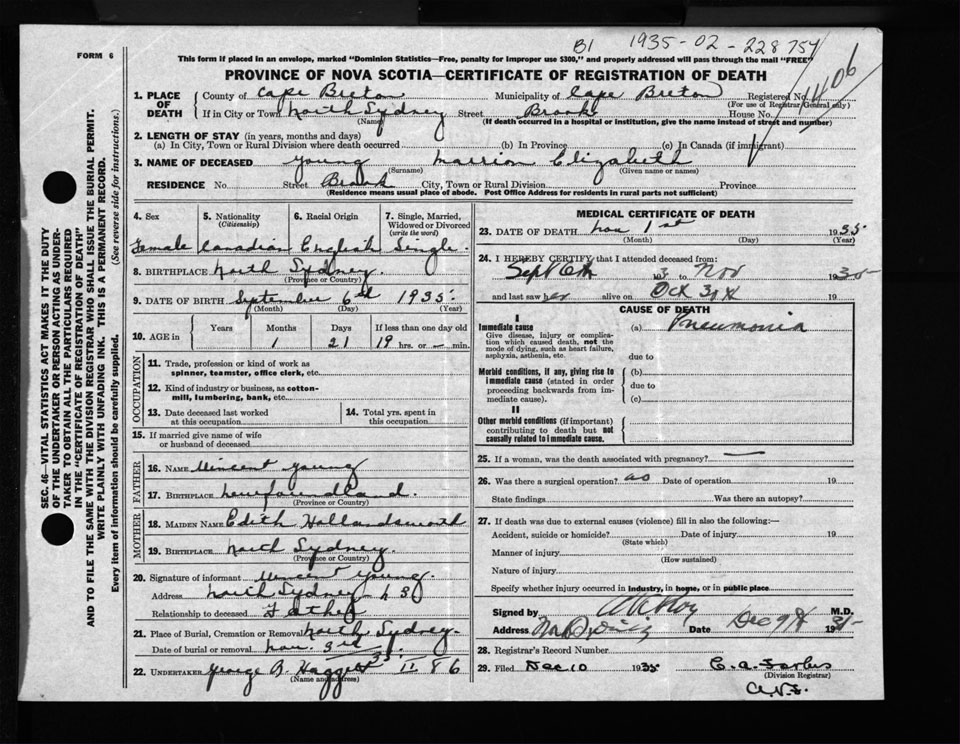 FORM 6
B1 1935-02-228754
1406
This form if placed in an envelope, marked "Dominion Statistics—Free, penalty for improper use $300," and properly addressed will pass through the mail "FREE"
PROVINCE OF NOVA SCOTIA—CERTIFICATE OF REGISTRATION OF DEATH
SEC. 46—VITAL STATISTICS ACT MAKES IT THE DUTY
OF THE UNDERTAKER OR PERSON ACTING AS UNDER-
TAKER TO OBTAIN ALL THE PARTICULARS REQUIRED
IN THE "CERTIFICATE OF REGISTRATION OF DEATH"
AND TO FILE THE SAME WITH THE DIVISION REGISTRAR WHO SHALL ISSUE THE BURIAL PERMIT.
WRITE PLAINLY WITH UNFADING INK. THIS IS A PERMANENT RECORD.
Every item of information should be carefully supplied. (See reverse side for instructions.)
1. PLACE OF DEATH County of Cape Breton Municipality of Cape Breton Registered No.
(For use of Registrar General only)
If in City or Town North Sydney Street Brook House No.
(Name) (If death occurred in a hospital or institution, give the name instead of street and number)
2. LENGTH OF STAY (in years, months and days)
(a) In City, Town or Rural Division where death occurred (b) In Province (c) In Canada (if immigrant)
3. NAME OF DECEASED Young Marrion Elizabeth
(Surname) (Given name or names)
RESIDENCE No. Street Brook City, Town or Rural Division Province
(Residence means usual place of abode. Post Office Address for residents in rural parts not sufficient)
4. Sex 5. Nationality (Citizenship) 6. Racial Origin 7. Single, Married, Widowed or Divorced (write the word)
Female Canadian English Single.
8. BIRTHPLACE North Sydney.
(Province or Country)
9. DATE OF BIRTH September 6th 1935.
(Month) (Day) (Year)
10. AGE in Years Months Days If less than one day old
1 21 19 hrs. or — min.
OCCUPATION
11. Trade, profession or kind of work as
spinner, teamster, office clerk, etc.
12. Kind of industry or business, as cotton-
mill, lumbering, bank, etc.
13. Date deceased last worked
at this occupation
14. Total yrs. spent in
this occupation
15. If married give name of wife
or husband of deceased
FATHER
16. NAME Vincent Young
17. BIRTHPLACE Newfoundland.
(Province or Country)
MOTHER
18. MAIDEN NAME Edith Hollandsworth
19. BIRTHPLACE North Sydney.
(Province or Country)
20. Signature of informant Vincent Young.
Address North Sydney N S
Relationship to deceased Father
21. Place of Burial, Cremation or Removal North Sydney.
Date of burial or removal Nov. 3rd
22. UNDERTAKER George B. Haggett II 86
(Name and address)
MEDICAL CERTIFICATE OF DEATH
23. DATE OF DEATH Nov 1st 1935.
(Month) (Day) (Year)
24. I HEREBY CERTIFY that I attended deceased from:
Sept 6th 193 to Nov 1935
and last saw her alive on Oct 30th 19
CAUSE OF DEATH
I
Immediate cause
Give disease, injury or complica-
tion which caused death, not the
mode of dying, such as heart failure,
asphyxia, asthenia, etc.
(a) Pneumonia
due to
Morbid conditions, if any, giving rise to
immediate cause (stated in order
proceeding backwards from im-
mediate cause).
(b)
due to
(c)
II
Other morbid conditions (if important)
contributing to death but not
causally related to immediate cause.
25. If a woman, was the death associated with pregnancy? —
26. Was there a surgical operation? no Date of operation 19
State findings Was there an autopsy?
27. If death was due to external causes (violence) fill in also the following:—
Accident, suicide or homicide? Date of injury 19
(State which)
Manner of injury
(How sustained)
Nature of injury
Specify whether injury occurred in industry, in home, or in public place
Signed by M.D.
Address Date Dec 9th 19
28. Registrar's Record Number
29. Filed Dec 10 1935 C. A. Forbes
(Division Registrar)